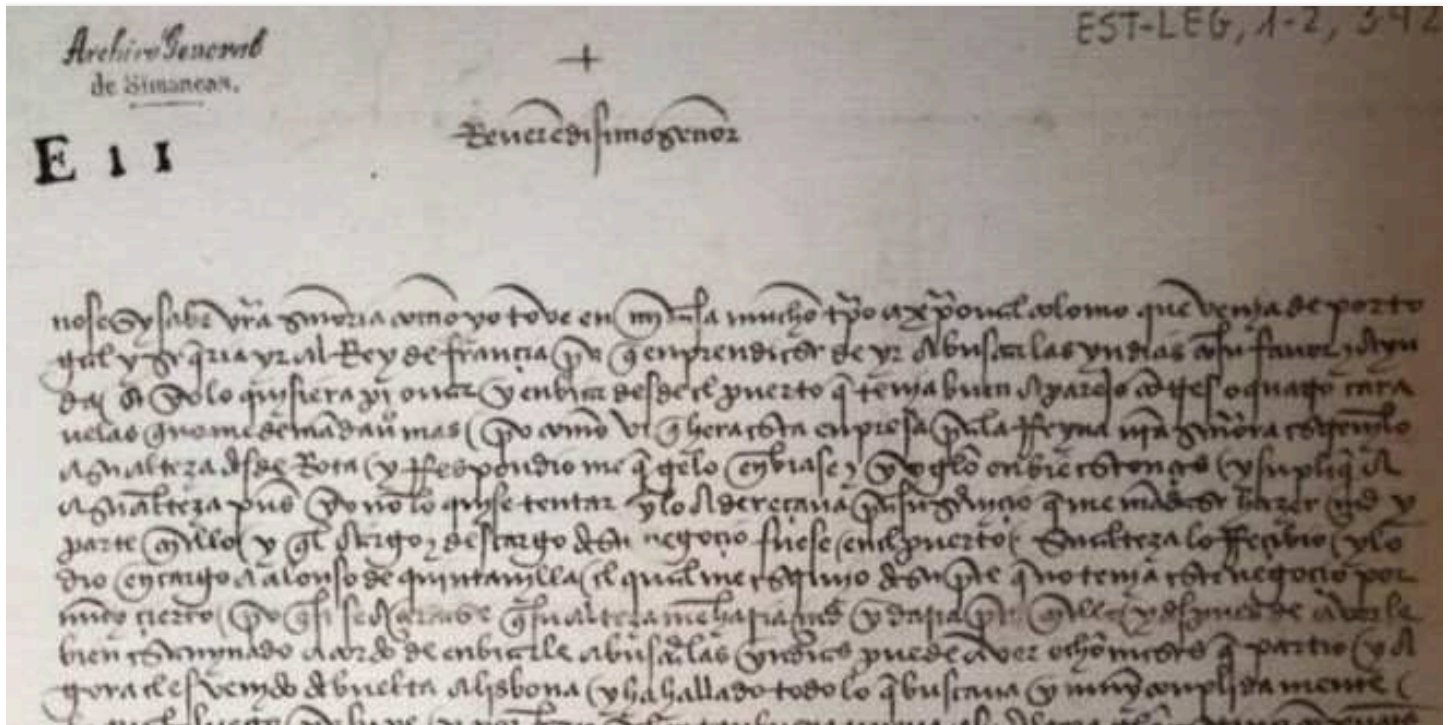 Archivo General
de Simancas.
EST-LEG, 1-2, 342
E 1 1
+
Reveredisimo señor
no se sy sabe vra señoria como yo tove en mi casa mucho tpo a xpoval colomo que venja de porto
gal y se qria yr al Rey de françia pa q enprendiese de yr a buscar las yndias con su favor y ayu
da e yo lo quisiera provar y enbiar desde el puerto q tenja buen aparejo con tres o quatro cara
velas q no me demãdava mas po como vi q hera esta enpresa pa la Reyna nra señora escrevilo
a su alteza desde Rota y Respondio me q gelo enbiase y yo gelo enbie estonçes y supliq a
su alteza pues yo no lo quise tentar y lo adereçava pa su serviçio q me mãdase hazer md y
parte en ello y q el cargo y descargo deste negoçio fuese en el puerto su alteza lo Reçibio y lo
dio en cargo a alonso de quintanilla el qual me escrivio de su pte q no tenja este negoçio por
muy çierto po q si se açertase q su alteza me haria md y daria pte en ello y despues de averle
bien esamynado acordo de enbiarle a buscar las yndias puede aver ocho meses q partio y a
gora el es venido de buelta a lisbona y ha hallado todo lo q buscava y muy conplidamente